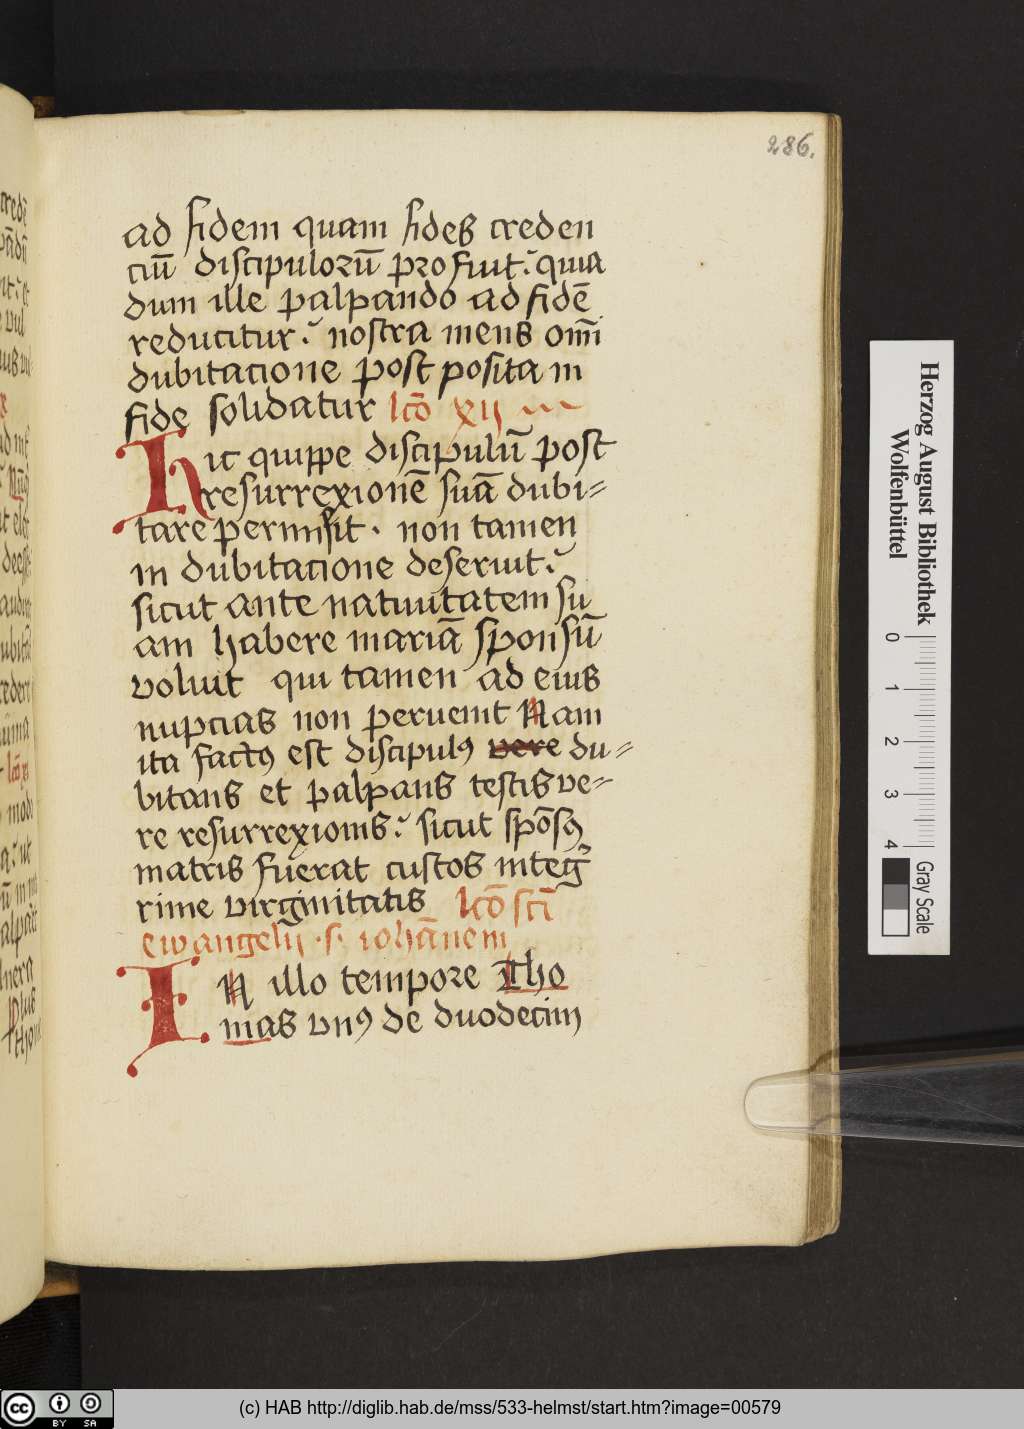 286.
ad fidem quam fides creden
ciū discipulorū profuit. quia
dum ille palpando ad fidē
reducitur. nostra mens om̄i
dubitacione post posita in
fide solidatur lcō xij
Hic quippe discipulū post
resurrexionē suā dubi=
tare permisit. non tamen
in dubitacione deseruit.
sicut ante natiuitatem su
am habere mariā sponsū
voluit qui tamen ad eius
nupcias non peruenit Nam
ita factꝯ est discipulꝯ vere du=
bitans et palpans testis ve=
re resurrexionis. sicut spōsꝯ
matris fuerat custos integ̾
rime virginitatis lcō scī
ewangelij .s. iohānem
IN illo tempore Tho
mas vnꝯ de duodecim
Herzog August Bibliothek
Wolfenbüttel
0 1 2 3 4
Gray Scale
cc BY SA
(c) HAB http://diglib.hab.de/mss/533-helmst/start.htm?image=00579